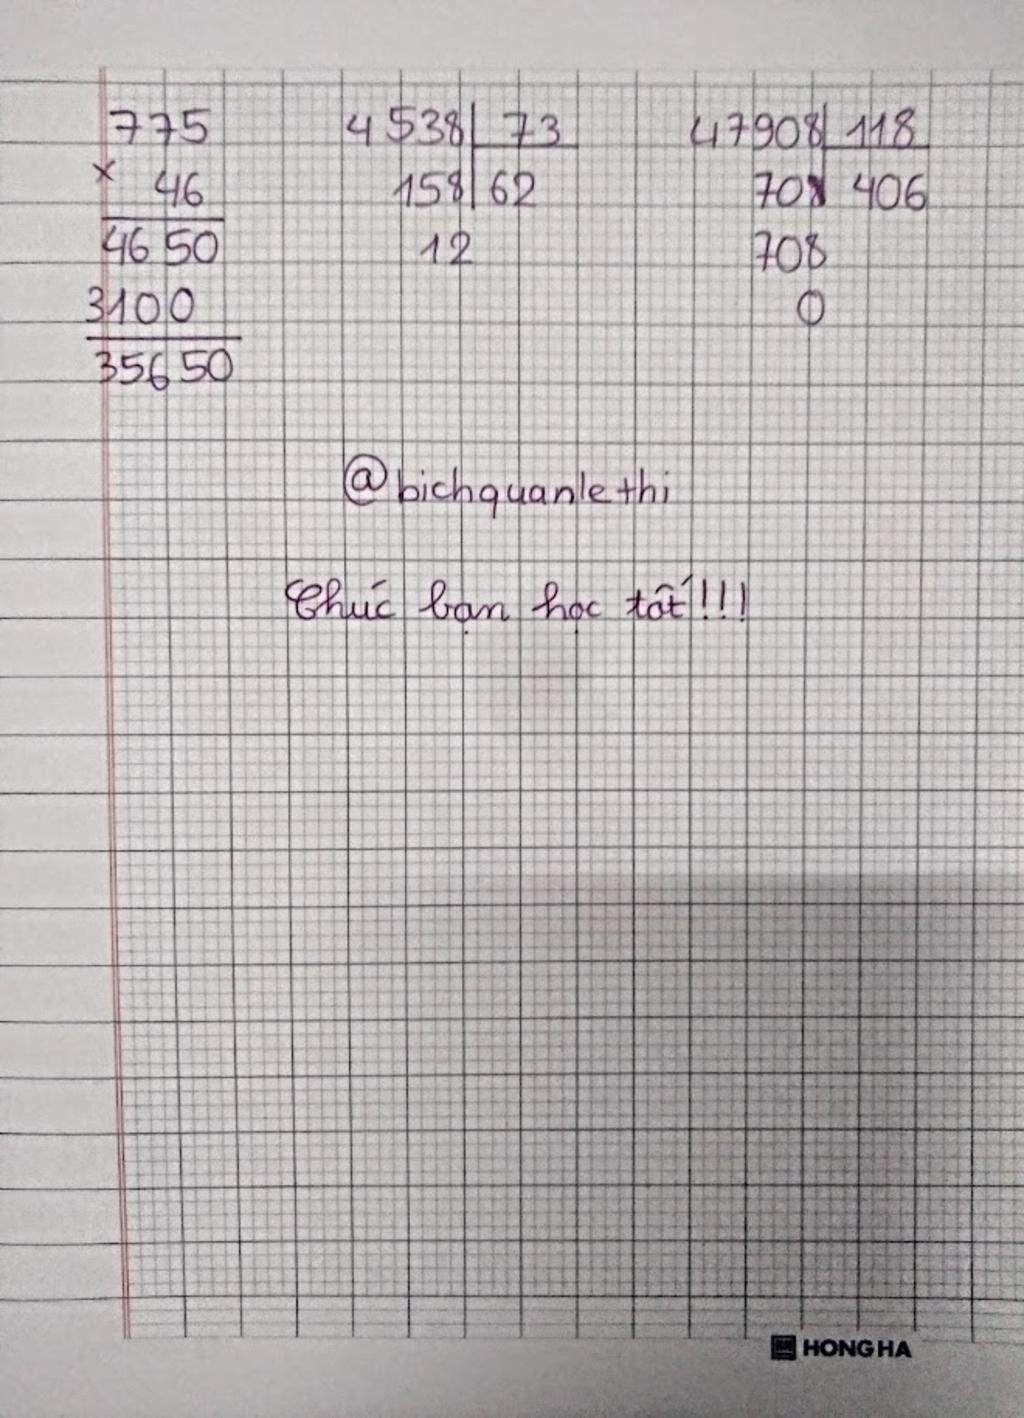 775 4538 73 47908 118
× 46 158 62 708 406
4650 12 708
3100 0
35650
@bichquanlethi
Chúc bạn học tốt!!!
HONG HA